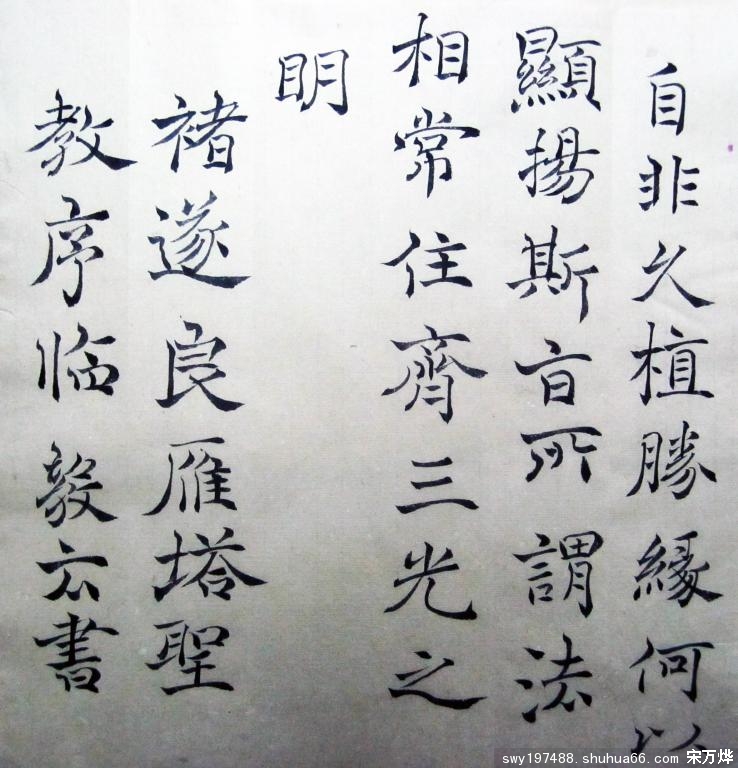 自非久植勝緣何以
顯揚斯旨所謂法
相常住齊三光之
眀
褚遂良雁塔聖
教序临毅書
swy197488.shuhua66.com 宋万烨